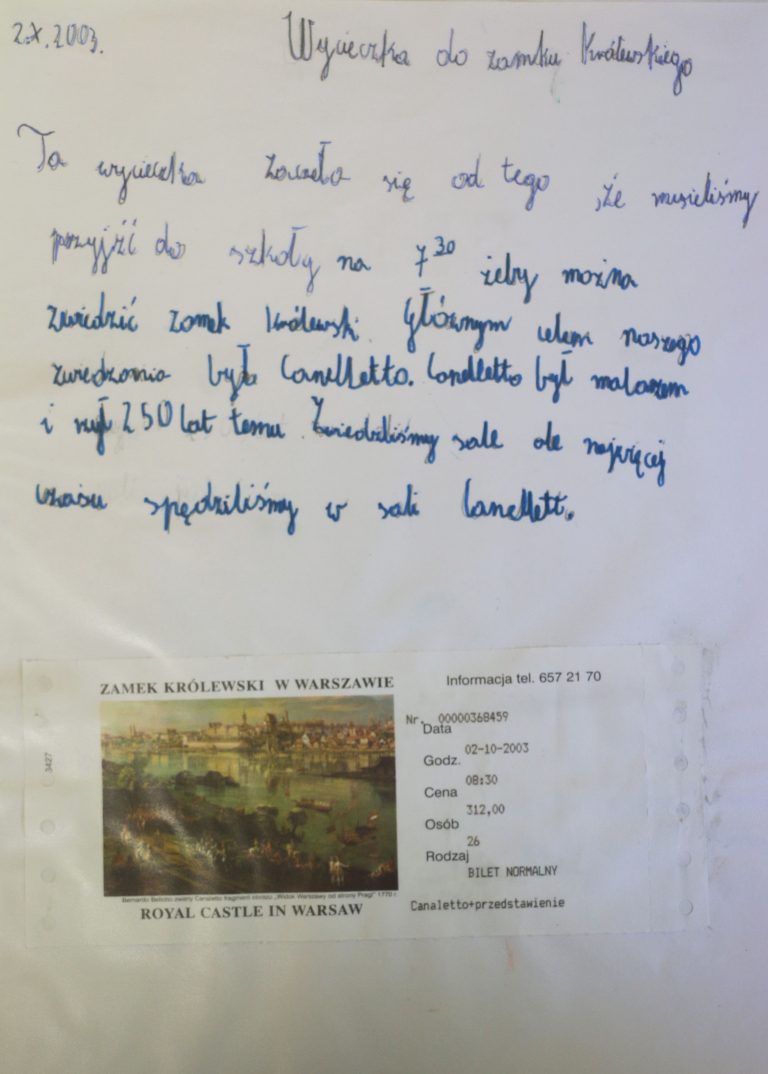 2.X.2003.
Wycieczka do zamku Królewskiego
Ta wycieczka zaczeła się od tego że musieliśmy
przyjźć do szkoły na 7³⁰ żeby można
zwiedzić zamek Królewski. Głównym celem naszego
zwiedzania była Canelletto. Canelletto był malazem
i rzył 250 lat temu. Zwiedziliśmy sale ale najwięcej
czasu spędziliśmy w sali Canellett.
ZAMEK KRÓLEWSKI W WARSZAWIE
Informacja tel. 657 21 70
Nr. 00000368459
Data
02-10-2003
Godz.
08:30
Cena
312,00
Osób
26
Rodzaj
BILET NORMALNY
Canaletto+przedstawienie
3427
Bernardo Bellotto zwany Canaletto fragment obrazu „Widok Warszawy od strony Pragi" 1770 r.
ROYAL CASTLE IN WARSAW